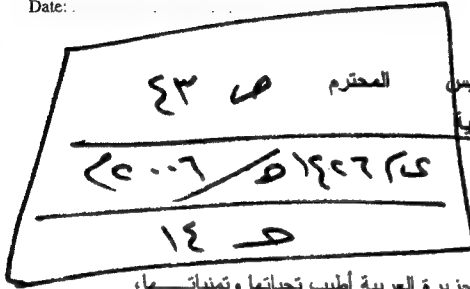 Date:
المحترم ص ٤٣
١٤٢٦ه / ٢٠٠٦م
١٤
العربية أطيب تحياتها وتمنياتـــها،